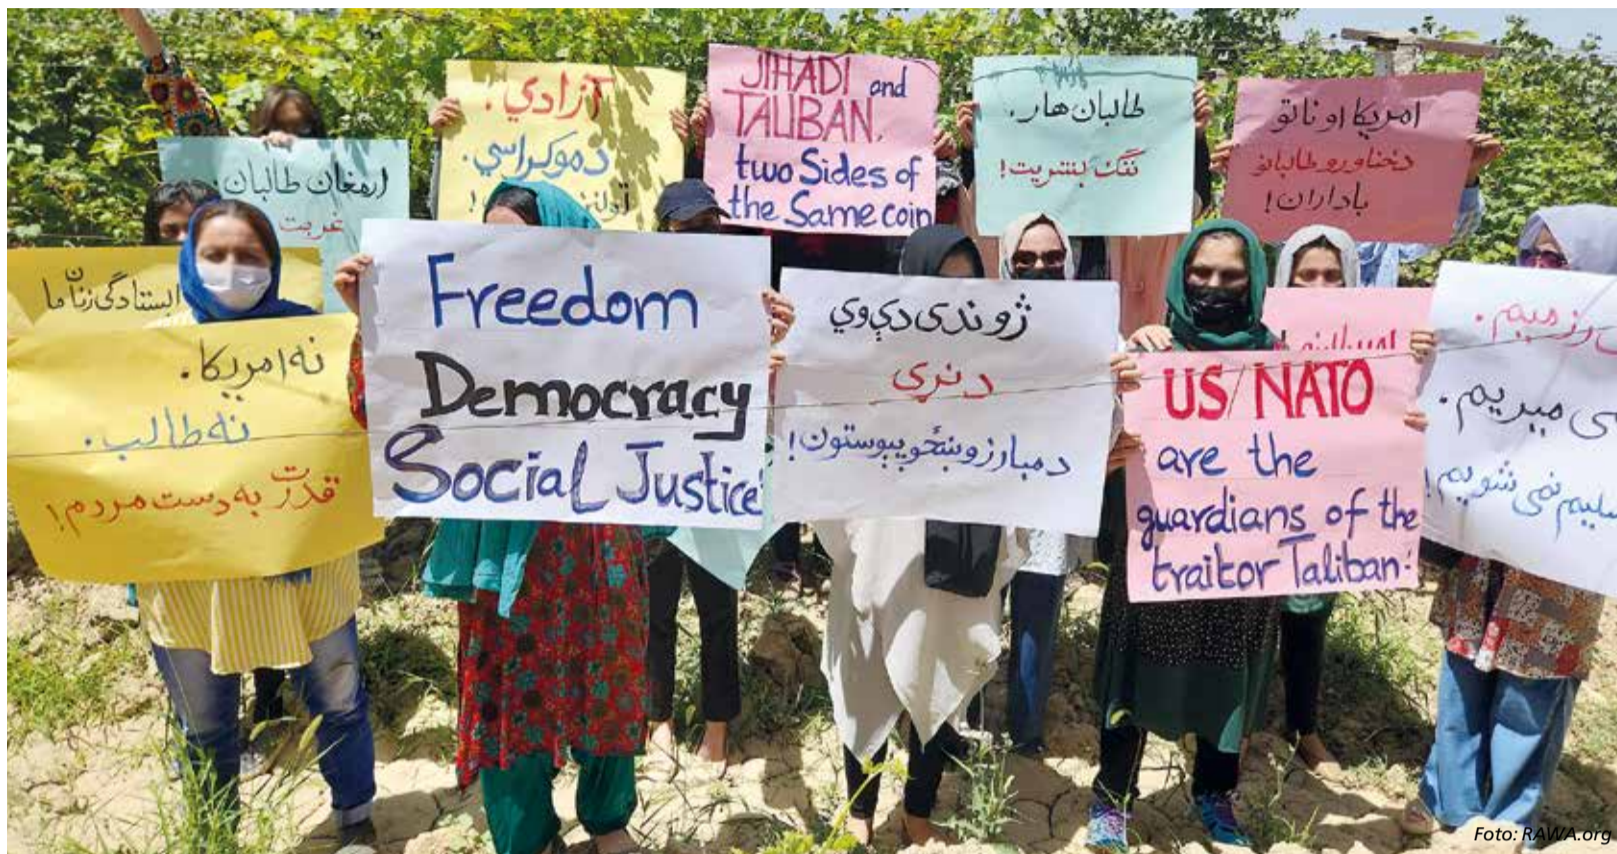 ارمغان طالبان.
غربت
آزادي.
دموکراسي.
JIHADI and
TALIBAN,
two Sides of
the Same coin
طالبان هار،
ننگ بشریت!
امریکا او ناتو
د ځناورو طالبانو
باداران!
ایستادگی زنان ما
نه امریکا.
نه طالب.
قدرت به دست مردم!
Freedom
Democracy
Social Justice
ژوندی دې وي
د نړۍ
د مبارزو ښځو پیوستون!
US/NATO
are the
guardians of the
traitor Taliban!
رزمیم.
می میریم.
نمی شویم!
Foto: RAWA.org